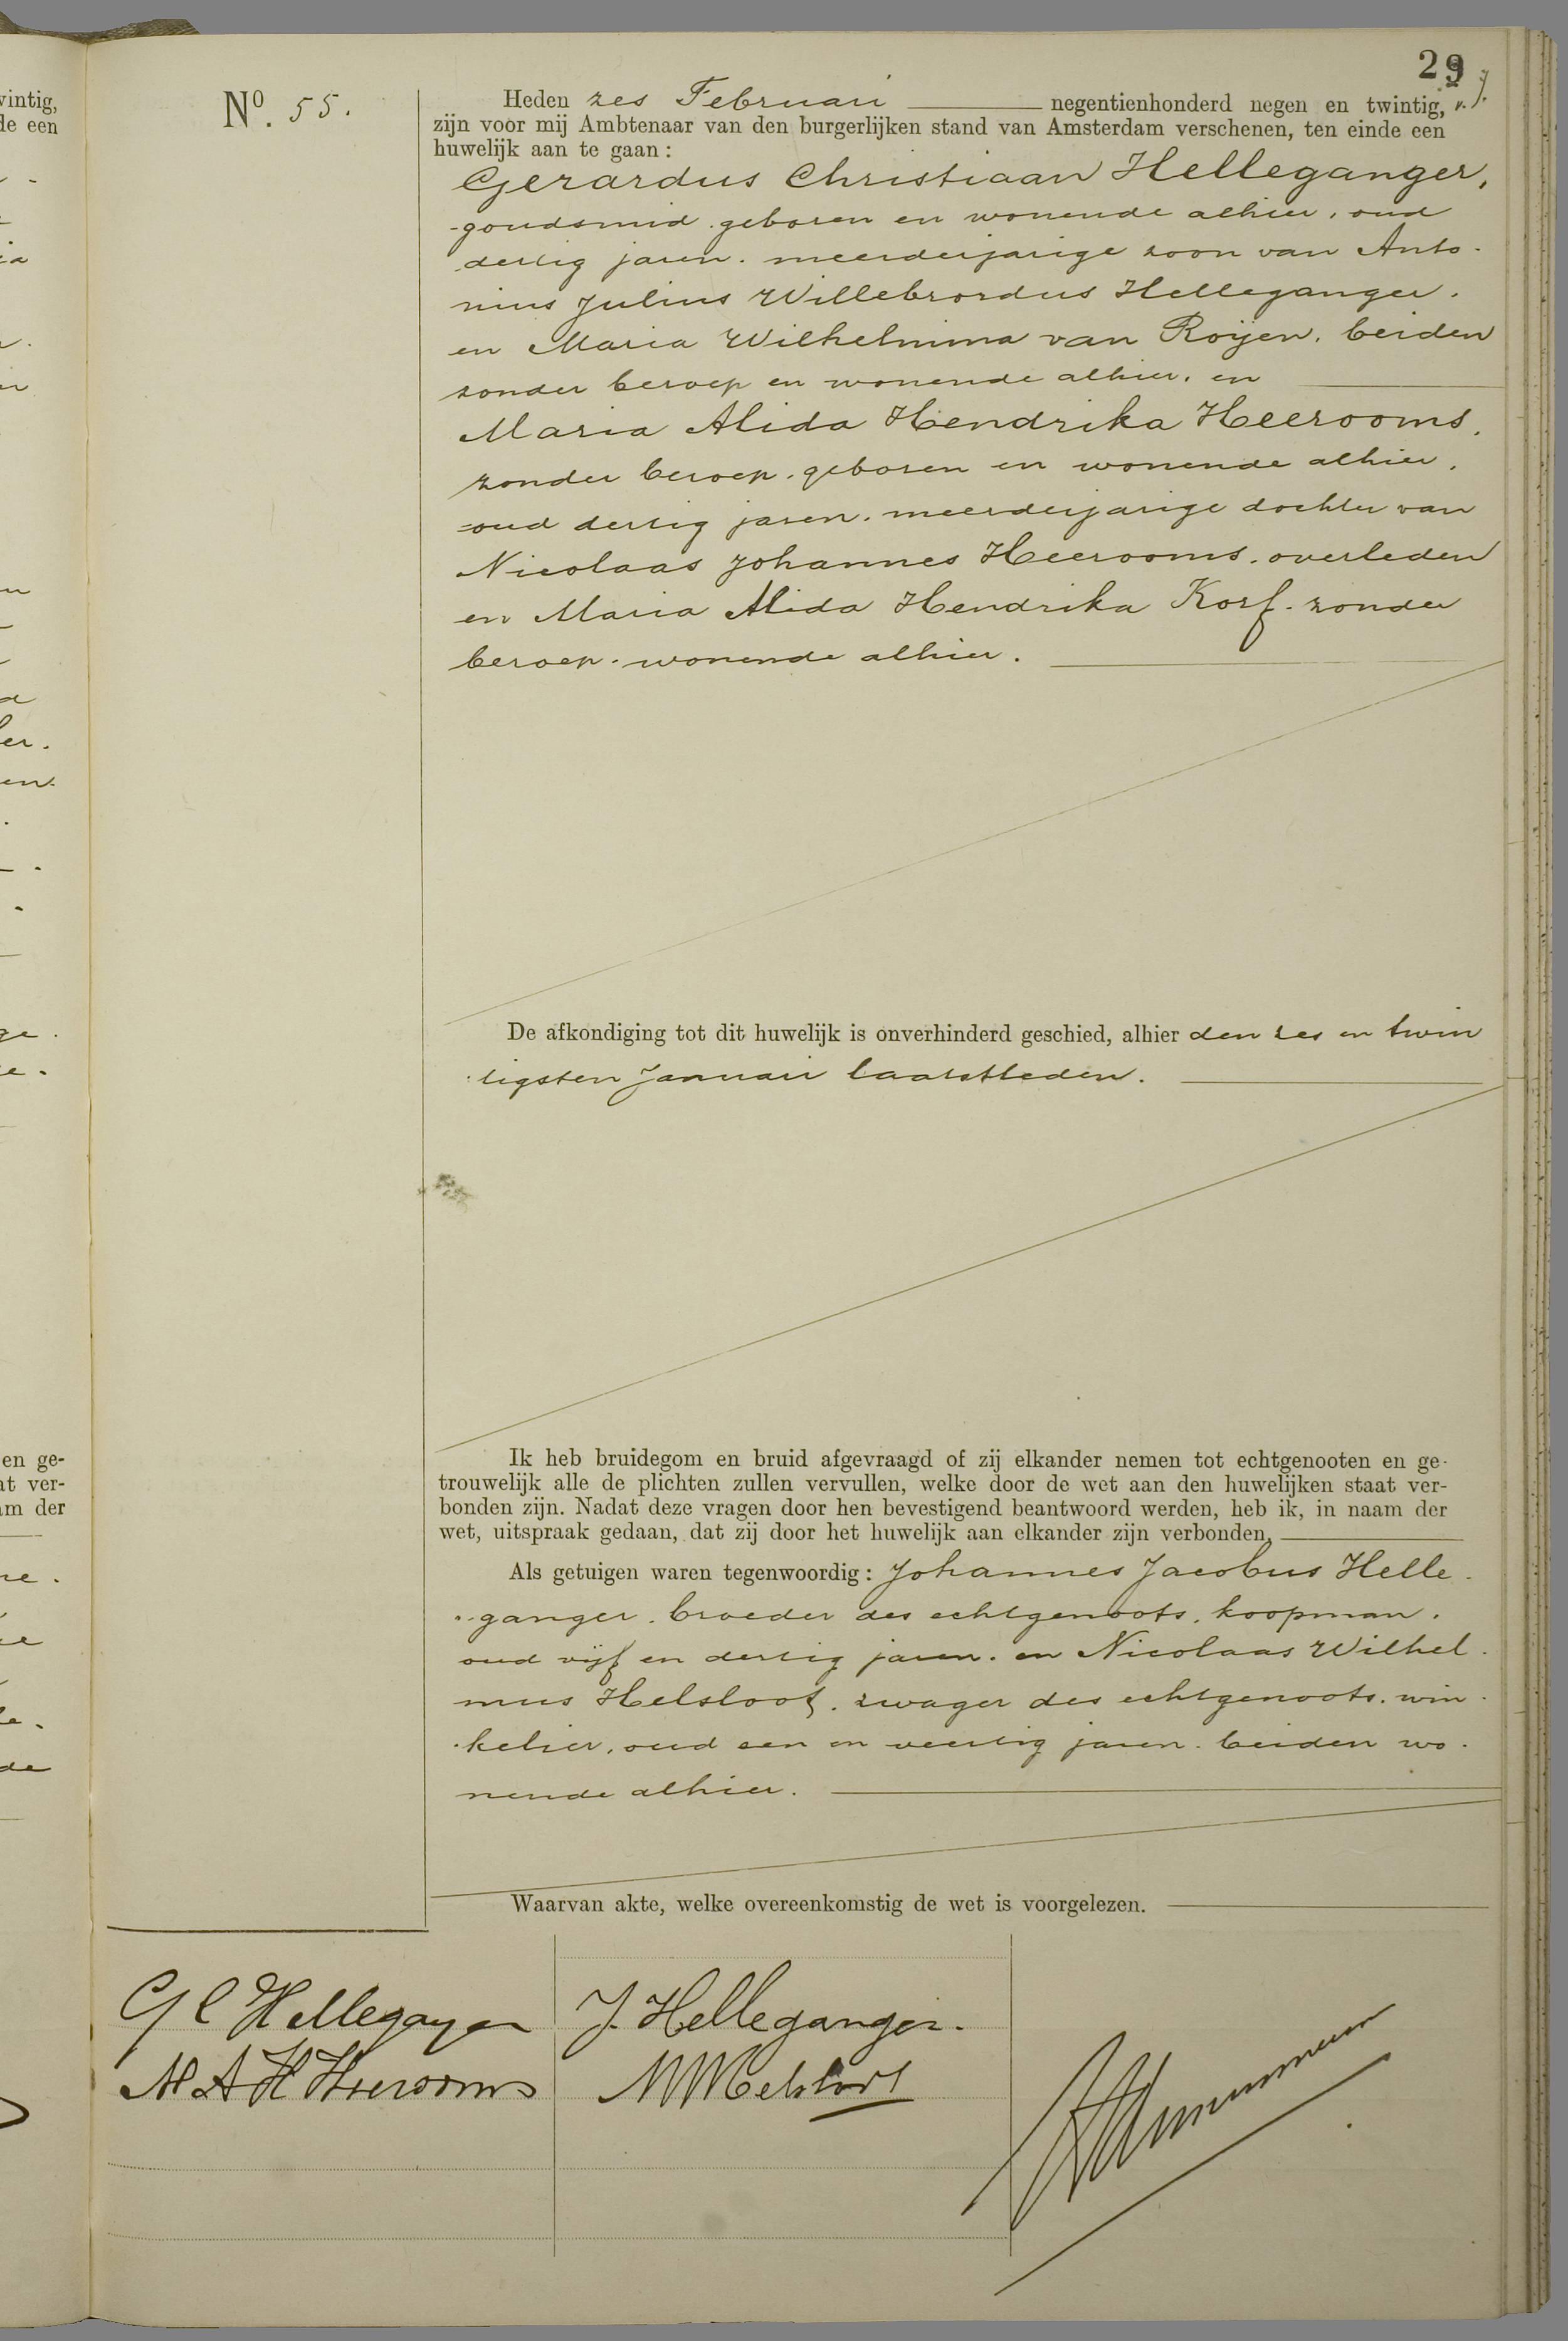 29
Nº. 55.
Heden zes Februari negentienhonderd negen en twintig,
zijn voor mij Ambtenaar van den burgerlijken stand van Amsterdam verschenen, ten einde een
huwelijk aan te gaan:
Gerardus Christiaan Helleganger,
goudsmid, geboren en wonende alhier, oud
dertig jaren, meerderjarige zoon van Anto-
nius Julius Willebrordus Helleganger,
en Maria Wilhelmina van Roijen, beiden
zonder beroep en wonende alhier, en
Maria Alida Hendrika Heerooms,
zonder beroep, geboren en wonende alhier,
oud dertig jaren, meerderjarige dochter van
Nicolaas Johannes Heerooms, overleden
en Maria Alida Hendrika Korf, zonder
beroep, wonende alhier.
De afkondiging tot dit huwelijk is onverhinderd geschied, alhier den zes en twin
tigsten Januari laatstleden.
Ik heb bruidegom en bruid afgevraagd of zij elkander nemen tot echtgenooten en ge-
trouwelijk alle de plichten zullen vervullen, welke door de wet aan den huwelijken staat ver-
bonden zijn. Nadat deze vragen door hen bevestigend beantwoord werden, heb ik, in naam der
wet, uitspraak gedaan, dat zij door het huwelijk aan elkander zijn verbonden,
Als getuigen waren tegenwoordig: Johannes Jacobus Helle-
ganger, broeder des echtgenoots, koopman,
oud vijf en dertig jaren, en Nicolaas Wilhel-
mus Helsloot, zwager des echtgenoots, win-
kelier, oud een en veertig jaren, beiden wo-
nende alhier.
Waarvan akte, welke overeenkomstig de wet is voorgelezen.
G C Helleganger J. Helleganger.
M A H Heerooms N W Helsloot
vintig,
de een
en ge-
at ver-
am der